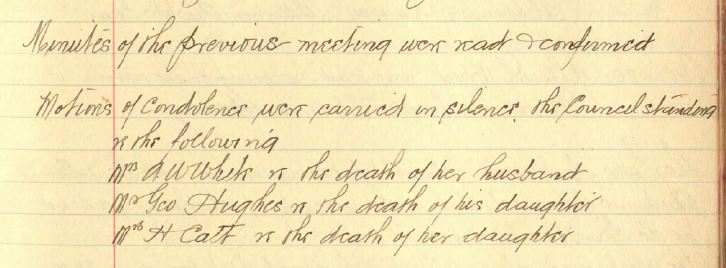 Minutes of the previous meeting were read & confirmed
Motions of Condolence were carried in silence, the Council standing
re the following
Mrs A W White re the death of her husband
Mr Geo Hughes re the death of his daughter
Mrs H Catt re the death of her daughter